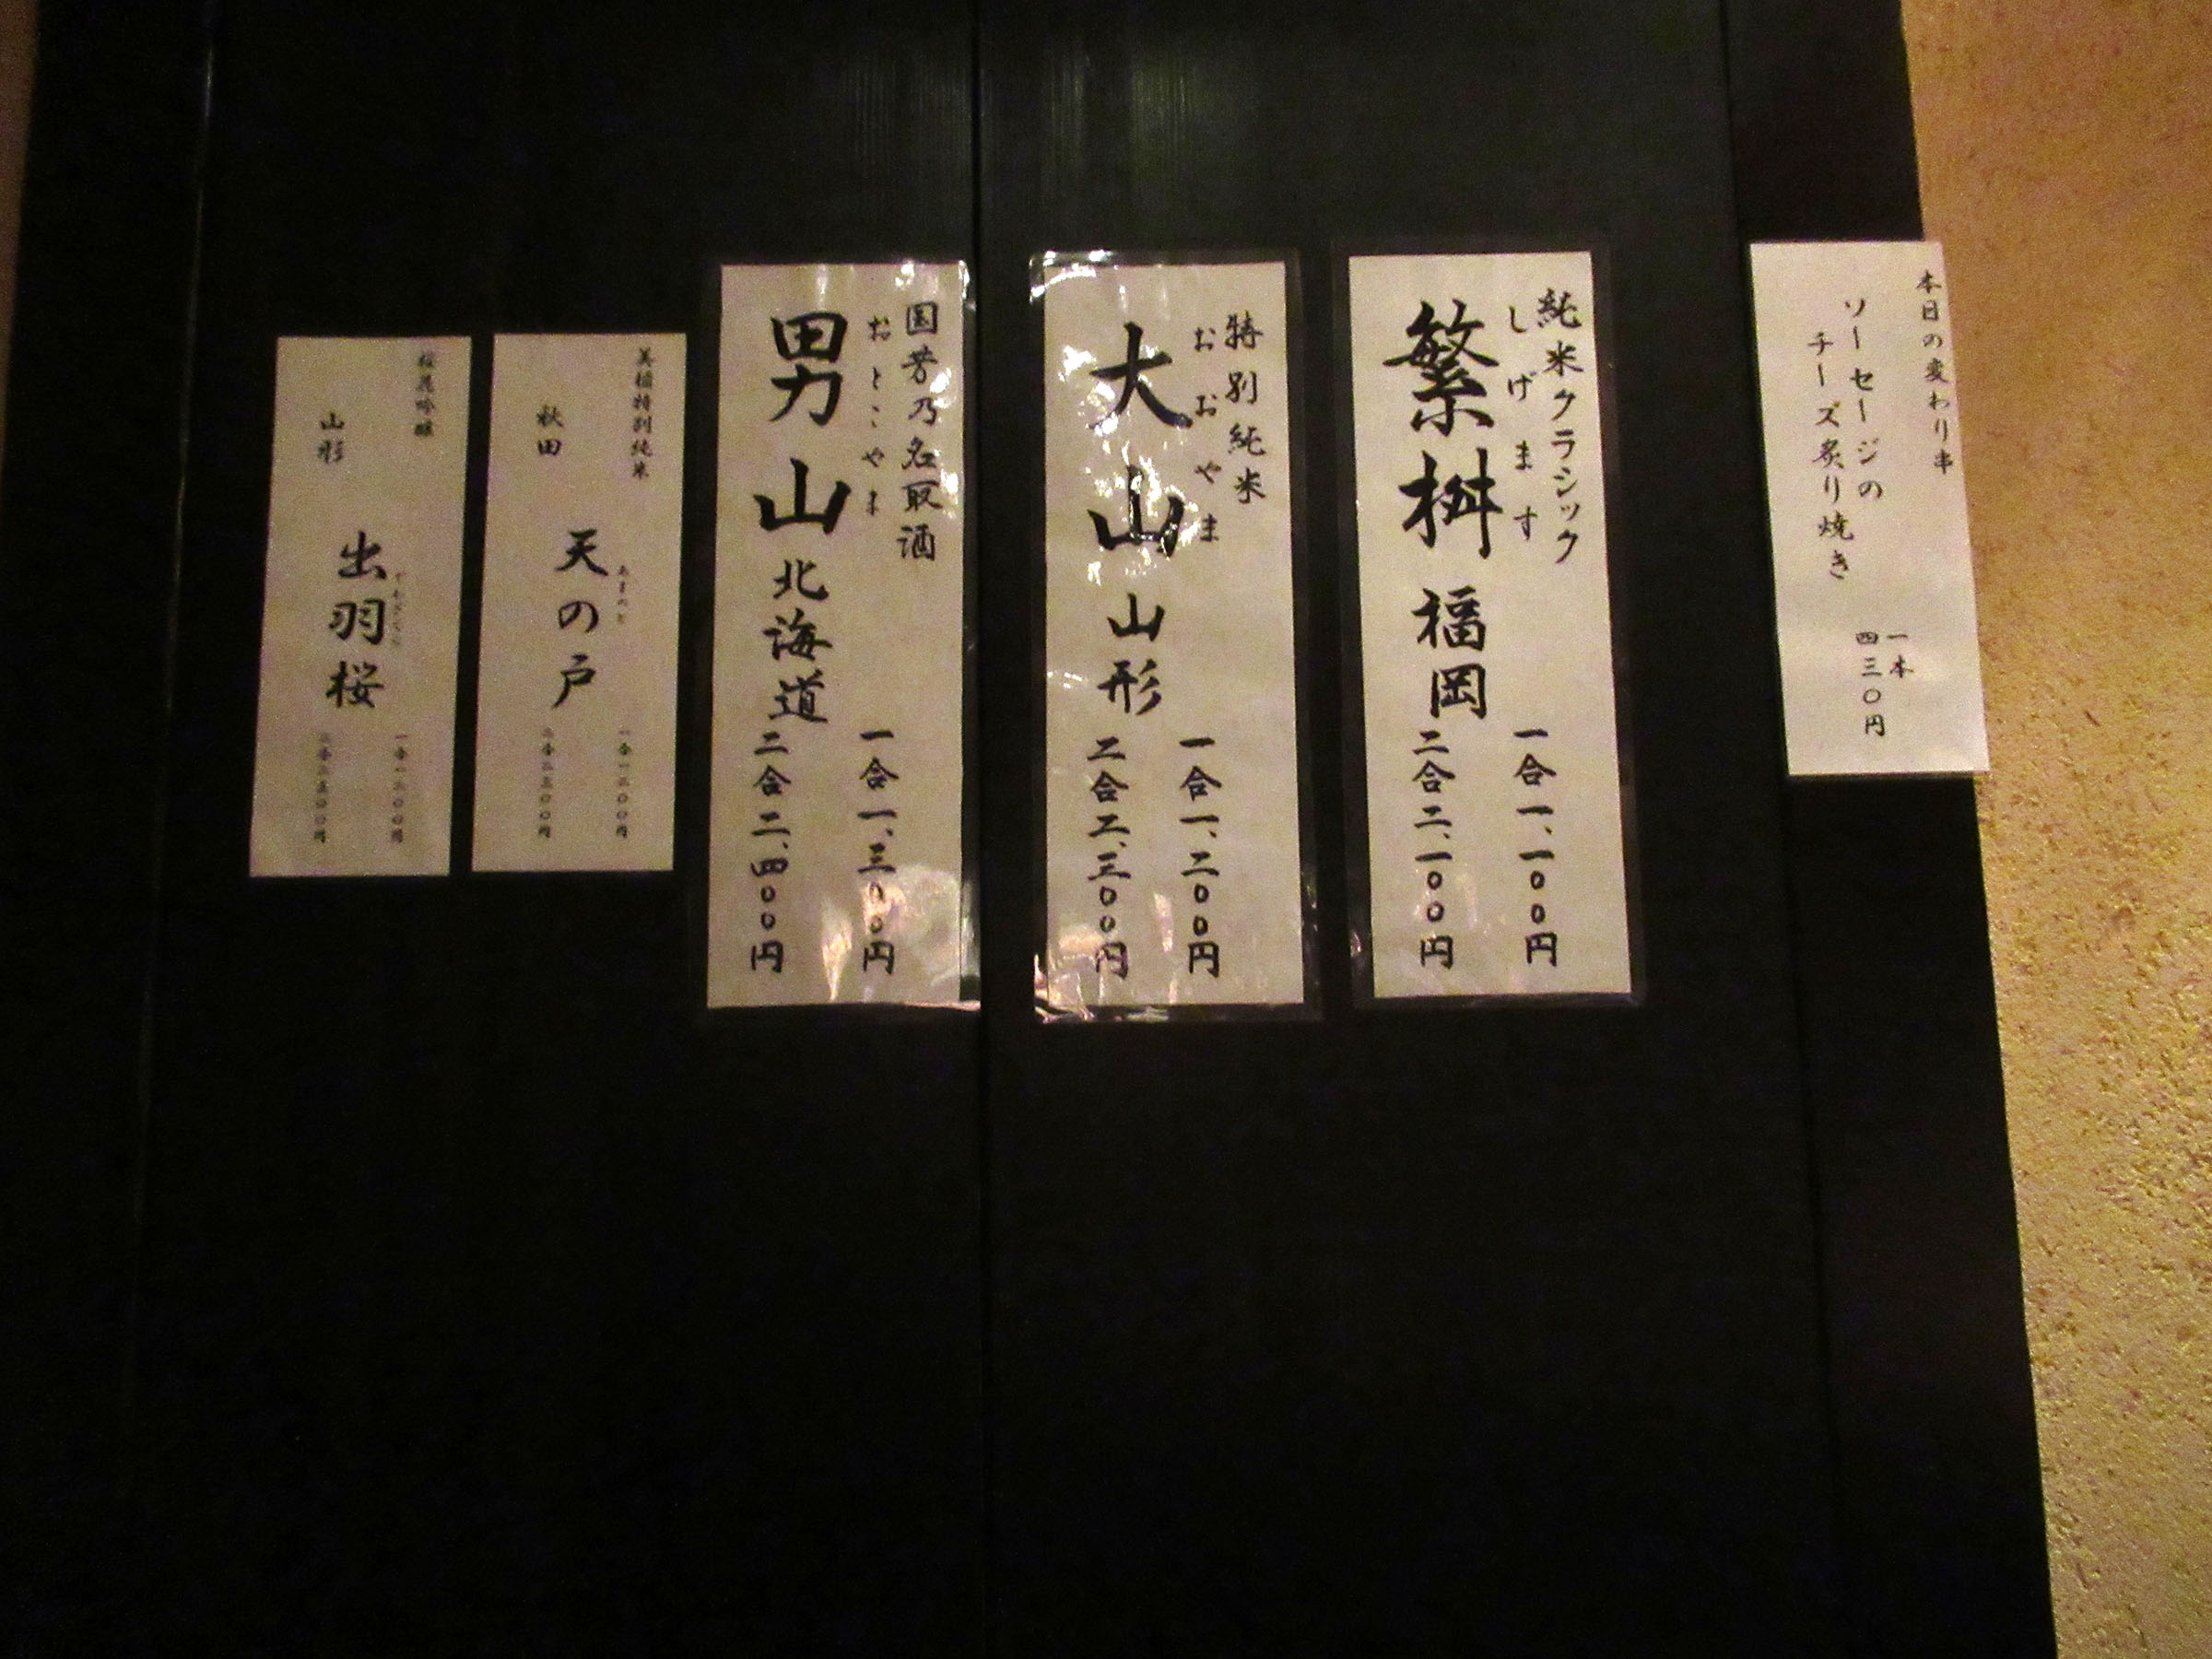 本日の変わり串
ソーセージの
チーズ炙り焼き
一本
四三〇円
純米クラシック
しげます
繁桝 福岡
一合一、一〇〇円
二合二、一〇〇円
特別純米
おおやま
大山 山形
一合一、二〇〇円
二合二、三〇〇円
国芳乃名取酒
おとこやま
男山 北海道
一合一、三〇〇円
二合二、四〇〇円
美稲特別純米
秋田
あまのと
天の戸
一合一二〇〇円
二合二三〇〇円
桜花吟醸
山形
出羽桜